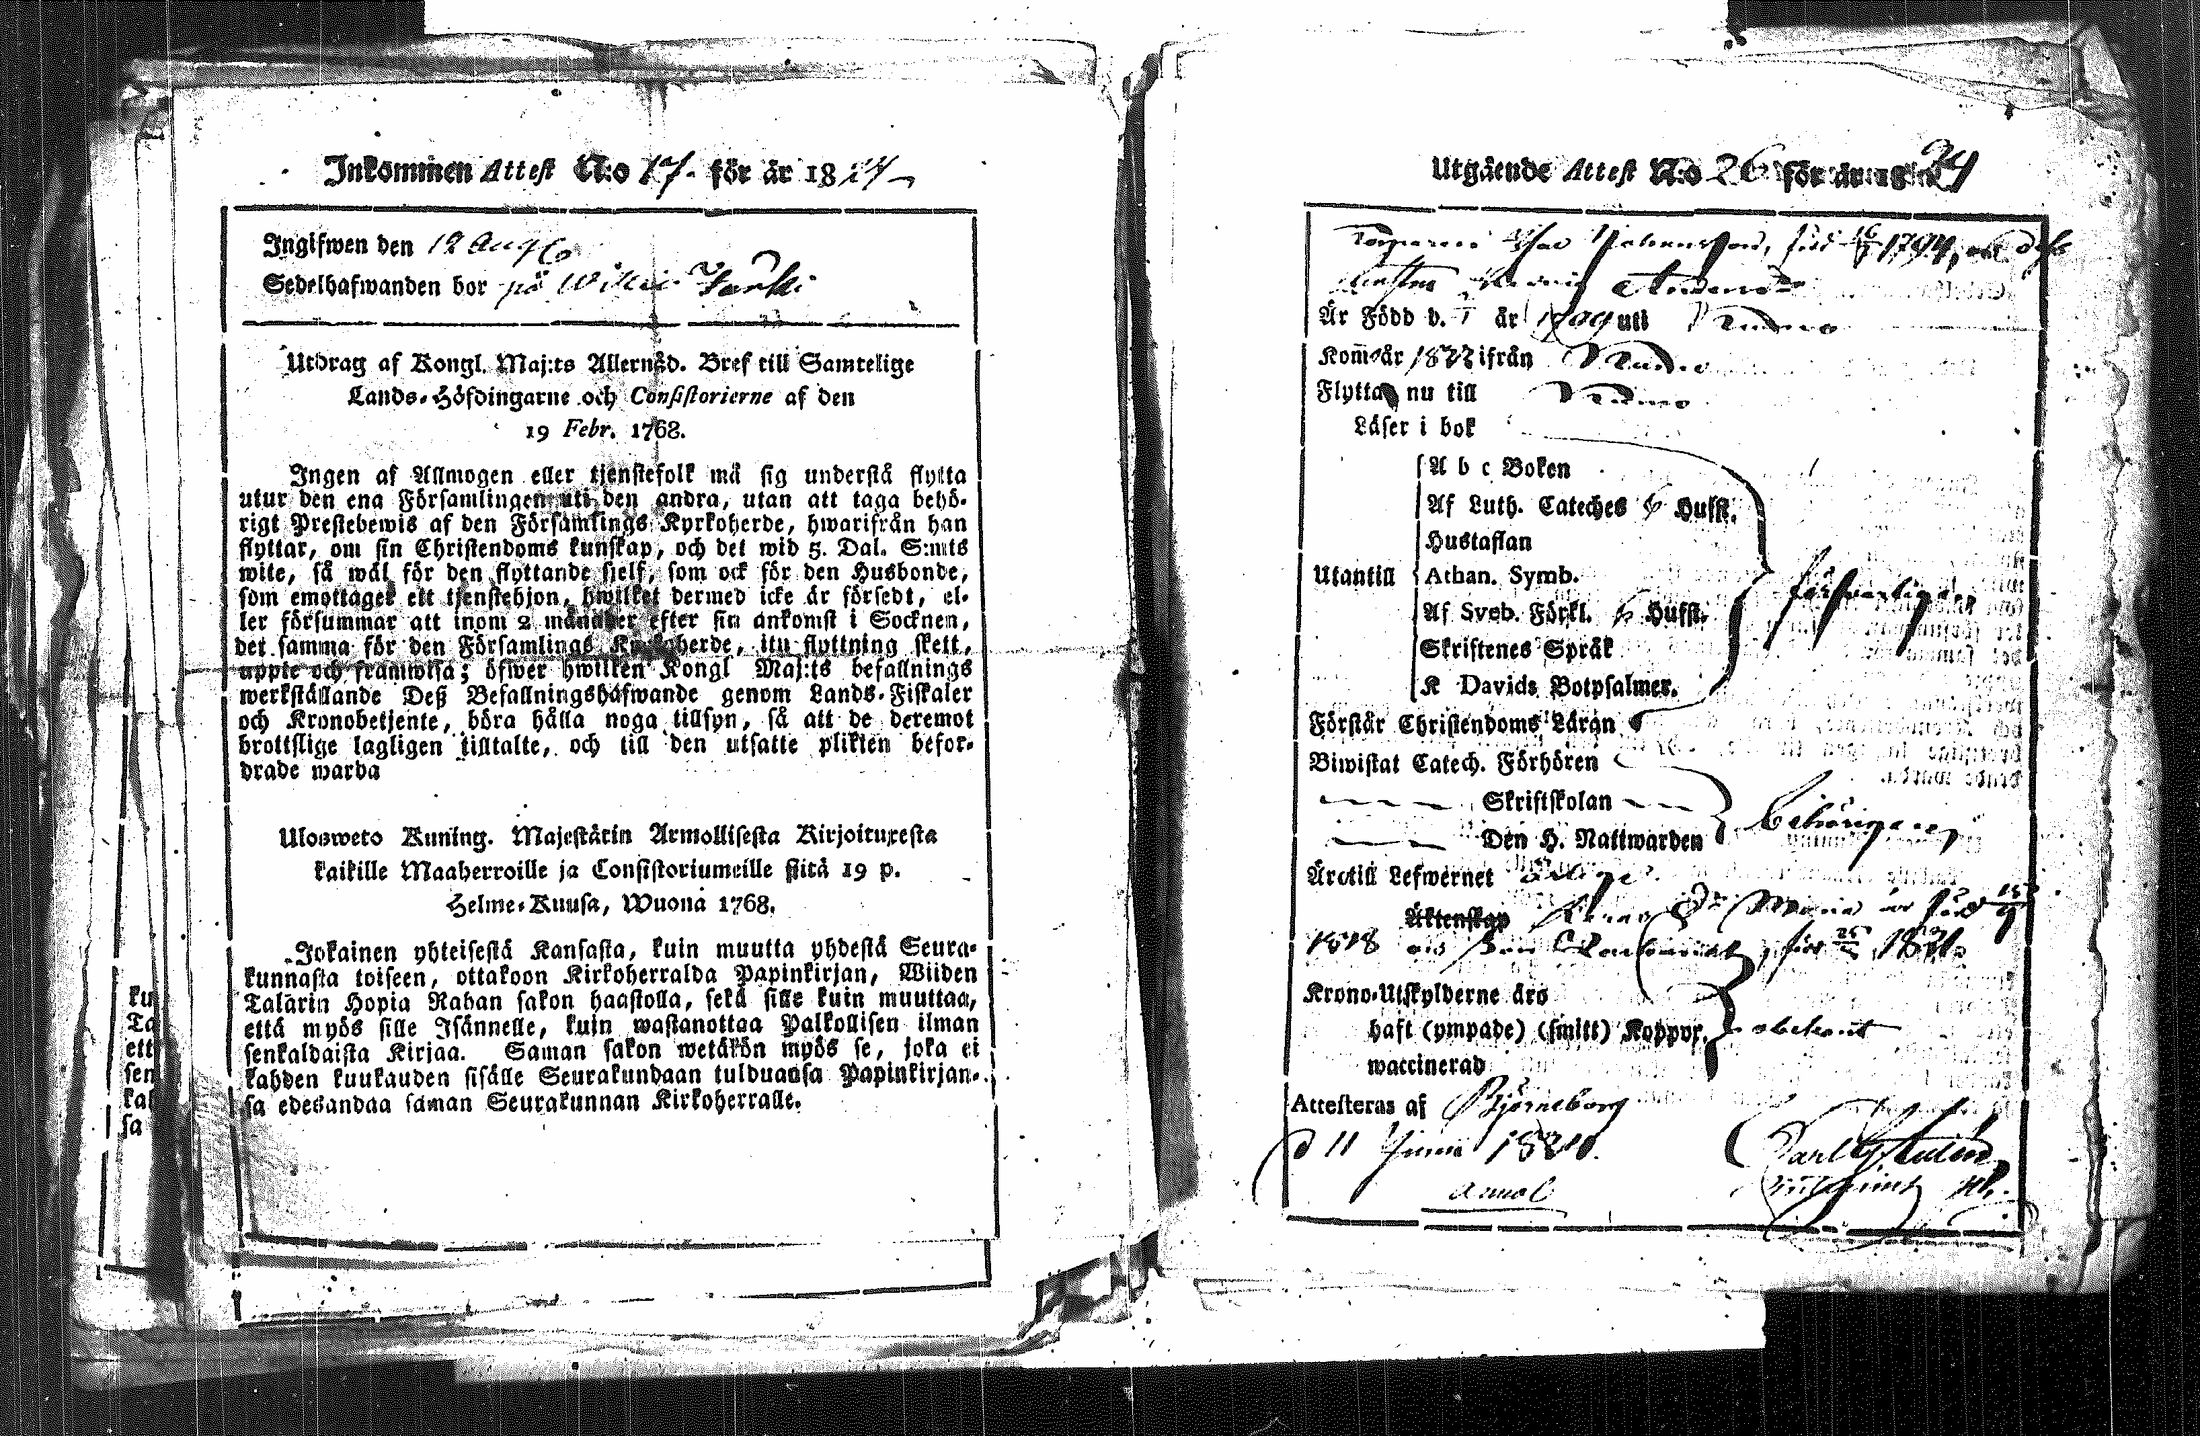 Inkommen Attest N:o 17. för år 1824
Ingifwen den 12 Aug
Sedelhafwanden bor på
Utdrag af Kongl. Maj:ts Allernåd. Bref till Samtelige
Lands-Höfdingarne och Consistorierne af den
19 Febr. 1768.
Ingen af Allmogen eller tjenstefolk må sig understå flytta
utur den ena Församlingen uti den andra, utan att taga behö-
rigt Prestebewis af den Församlings Kyrkoherde, hwarifrån han
flyttar, om sin Christendoms kunskap, och det wid 5. Dal. S:mts
wite, så wäl för den flyttande sjelf, som ock för den Husbonde,
som emottager ett tjenstehjon, hwilket dermed icke är försedt, el-
ler försummar att inom 2 månader efter sin ankomst i Socknen,
det samma för den Församlings Kyrkoherde, itu flyttning skett,
uppte och framwisa; öfwer hwilken Kongl Maj:ts befallnings
werkställande Deß Befallningshafwande genom Lands-Fiskaler
och Kronobetjente, böra hålla noga tillsyn, så att de deremot
brottslige lagligen tilltalte, och till den utsatte plikten befor-
drade warda
Ulosweto Kuning. Majestätin Armollisesta Kirjoituxesta
kaikille Maaherroille ja Consistoriumeille siitä 19 p.
Helme-Kuusa, Wuona 1768.
Jokainen yhteisestä Kansasta, kuin muutta yhdestä Seura-
kunnasta toiseen, ottakoon Kirkoherralda Papinkirjan, Wiiden
Talarin Hopia Rahan sakon haastolla, sekä sille kuin muuttaa,
että myös sille Isännelle, kuin wastanottaa Palkollisen ilman
senkaldaista Kirjaa. Saman sakon wetäkön myös se, joka ei
kahden kuukauden sisälle Seurakundaan tulduansa Papinkirjan-
sa edesandaa saman Seurakunnan Kirkoherralle.
ku
Ta
ett
sen
kah
sa
Utgående Attest N:o 26 för år 24
1794,
Är Född d. år uti
Kom år 1822 ifrån
Flytta nu till
Läser i bok
A b c Boken
Af Luth. Cateches 6 Hufst.
Hustaflan
Utantill Athan. Symb. försvarligen
Af Sveb. Förkl. 6 Hufst.
Skriftenes Språk
K Davids Botpsalmer.
Förstår Christendoms Läran
Biwistat Catech. Förhören
Skriftskolan
Den H. Nattwarden behörigen
Är till Lefwernet
Äktenskap Maria är född
1818 född 1821.
Krono-Utskylderne äro
haft (ympade) (smitt) Koppor. obekant
waccinerad
Attesteras af Björneborg
d 11 Junii 1824.